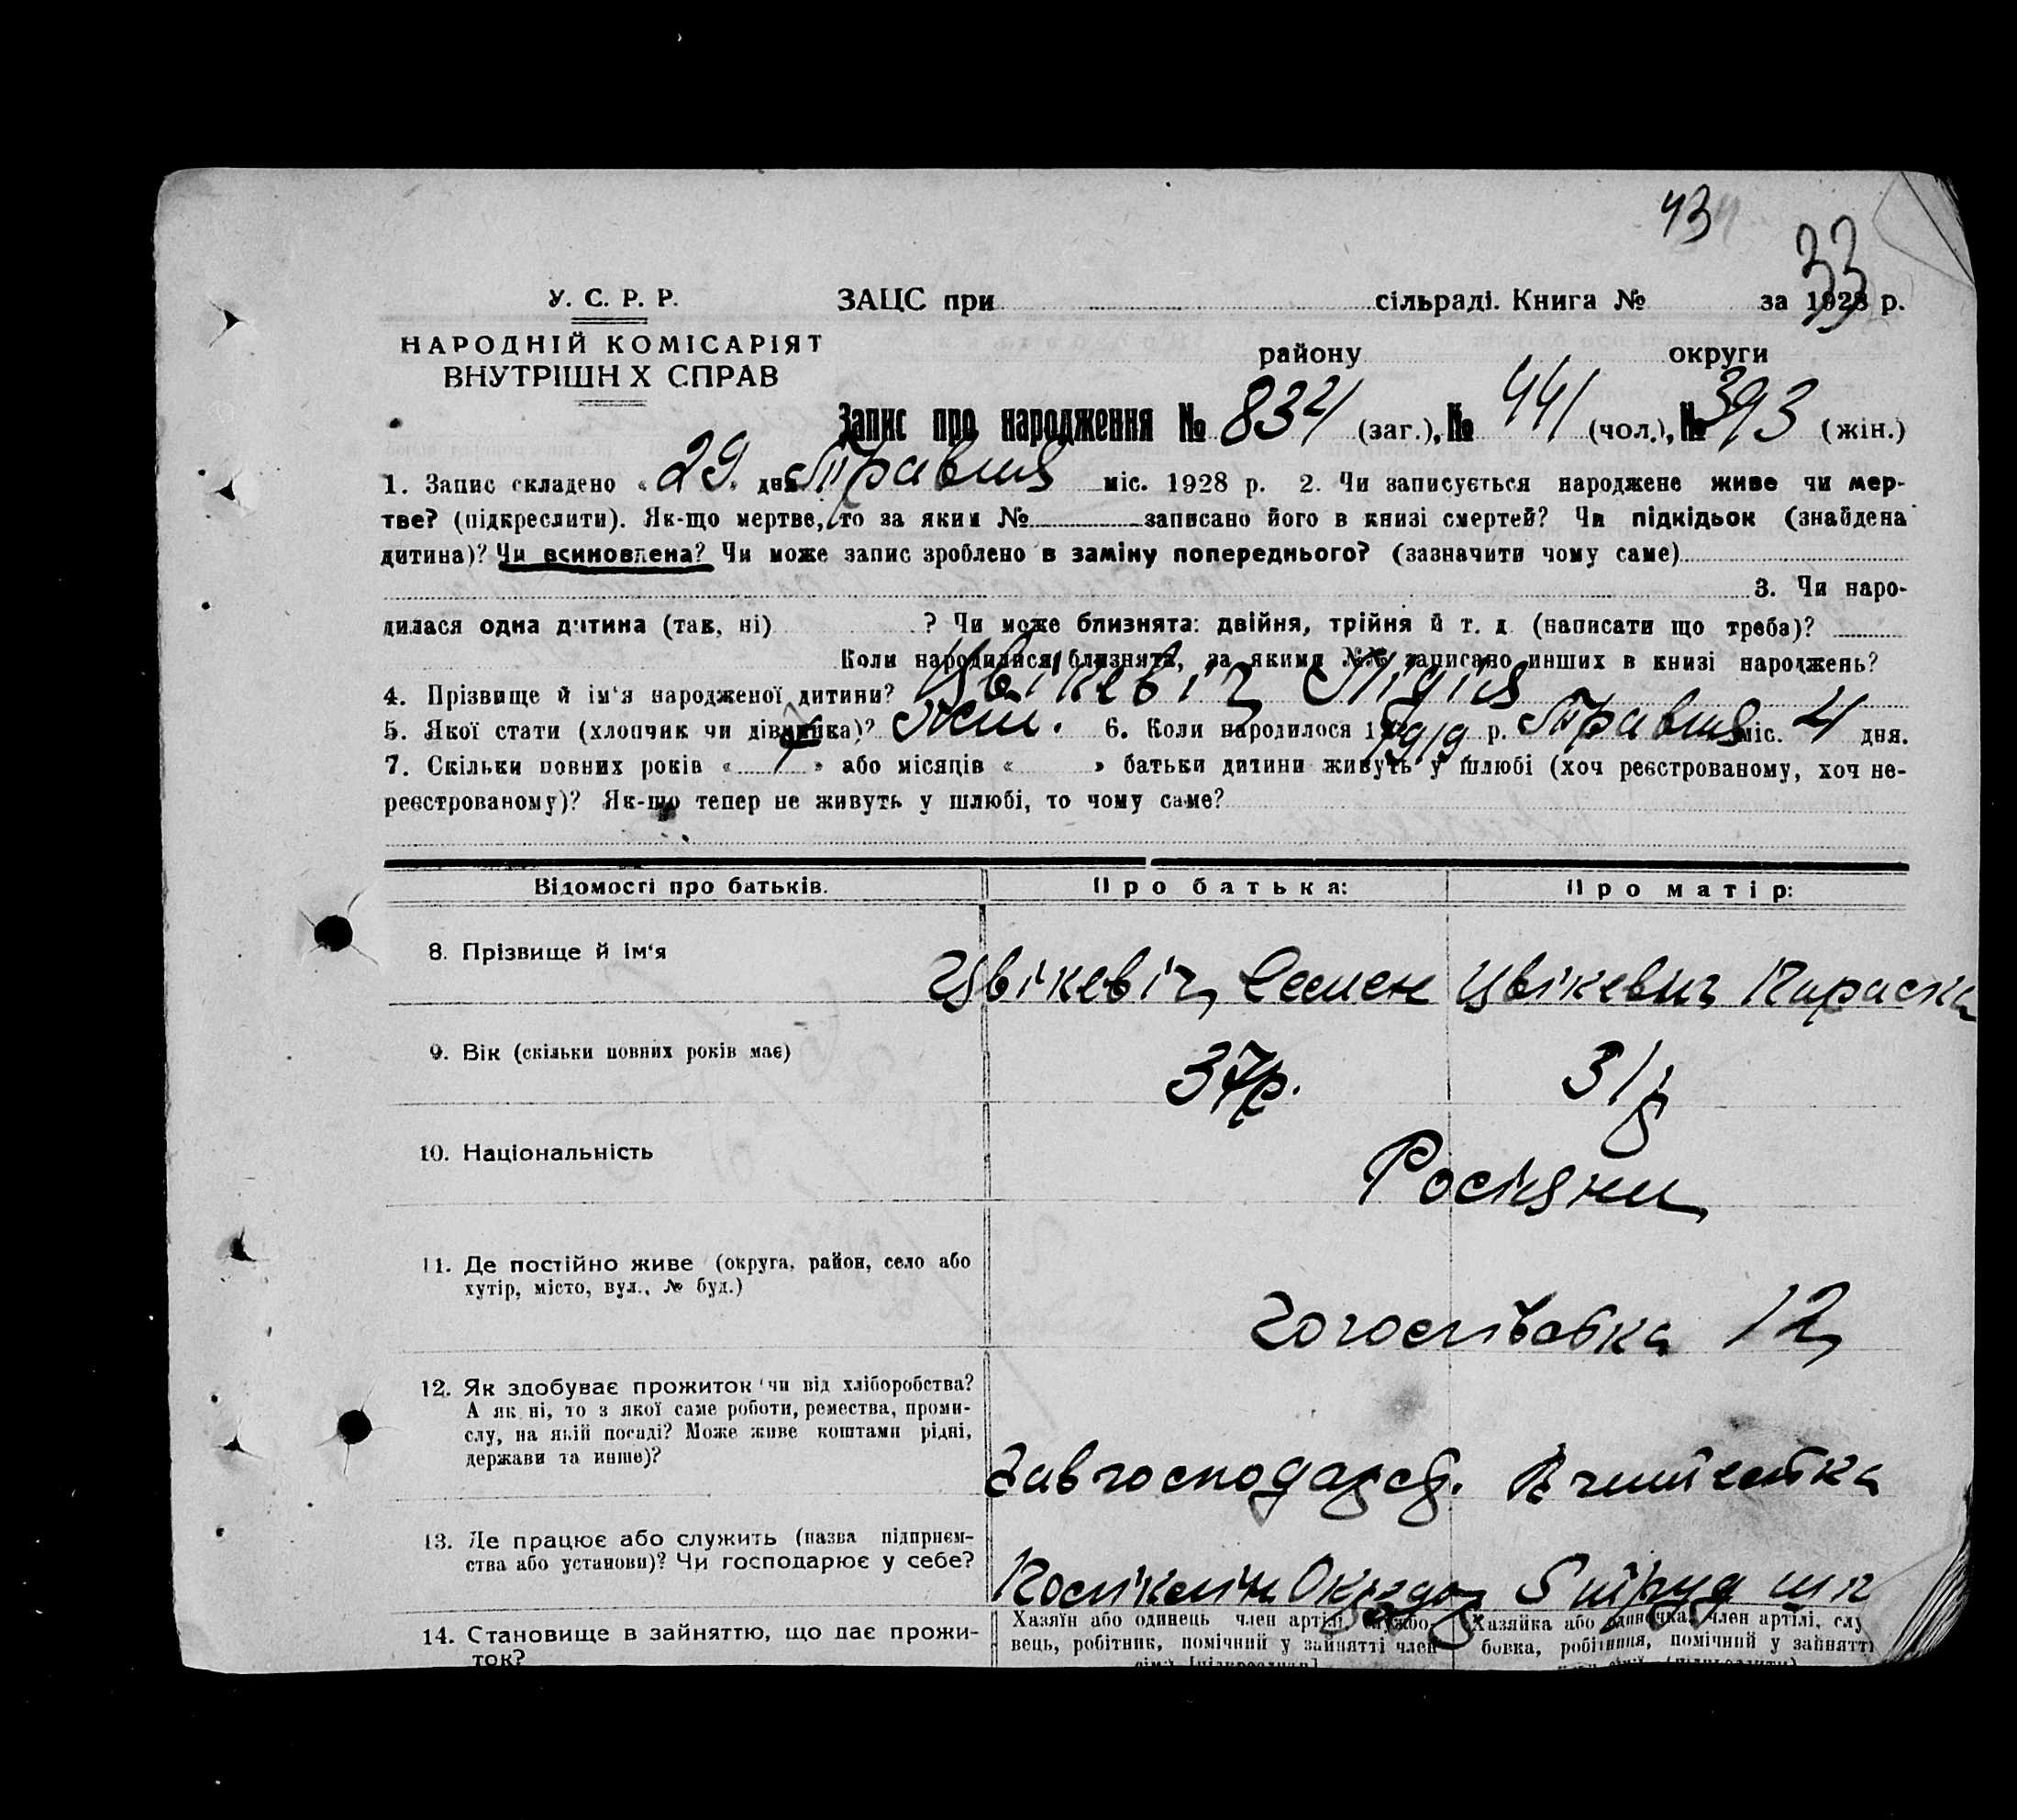 43
33
У. С. Р. Р.
ЗАЦС при сільраді. Книга № за 1928 р.
НАРОДНІЙ КОМІСАРІЯТ
ВНУТРІШН Х СПРАВ
району округи
Запис про народження № 834 (заг.), № 441 (чол.), № 393 (жін.)
1. Запис складено « 29 » дня Травня міс. 1928 р. 2. Чи записується народжене живе чи мер-
тве? (підкреслити). Як-що мертве, то за яким № записано його в книзі смертей? Чи підкідьок (знайдена
дитина)? Чи всиновлена? Чи може запис зроблено в заміну попереднього? (зазначити чому саме)
3. Чи наро-
дилася одна дитина (так, ні) ? Чи може близнята: двійня, трійня й т. д. (написати що треба)?
Коли народилися близнята, за якими №№ записано инших в книзі народжень?
4. Прізвище й ім'я народженої дитини? Цвікевіч Лідія
5. Якої стати (хлопчик чи дівчинка)? жін. 6. Коли народилося 1919 р. Травня міс. 4 дня.
7. Скільки повних років « » або місяців « » батьки дитини живуть у шлюбі (хоч реєстрованому, хоч не-
реєстрованому)? Як-що тепер не живуть у шлюбі, то чому саме?
Відомості про батьків. Про батька: Про матір:
8. Прізвище й ім'я Цвікевіч Семен Цвікевич Параска
9. Вік (скільки повних років має) 37р. 31р
10. Національність Росіяни
11. Де постійно живе (округа, район, село або
хутір, місто, вул., № буд.)
12
12. Як здобуває прожиток чи від хліборобства?
А як ні, то з якої саме роботи, ремества, проми-
слу, на якій посаді? Може живе коштами рідні,
держави та инше)?
Завгосподарств. Вчителька
13. Де працює або служить (назва підприєм-
ства або установи)? Чи господарює у себе?
5 труд шк
14. Становище в зайняттю, що дає прожи-
ток?
Хазяїн або одинець член артілі, службо-
вець, робітник, помічний у зайнятті член
Хазяйка або одиночка, член артілі, слу
бовка, робітниця, помічний у зайнятті